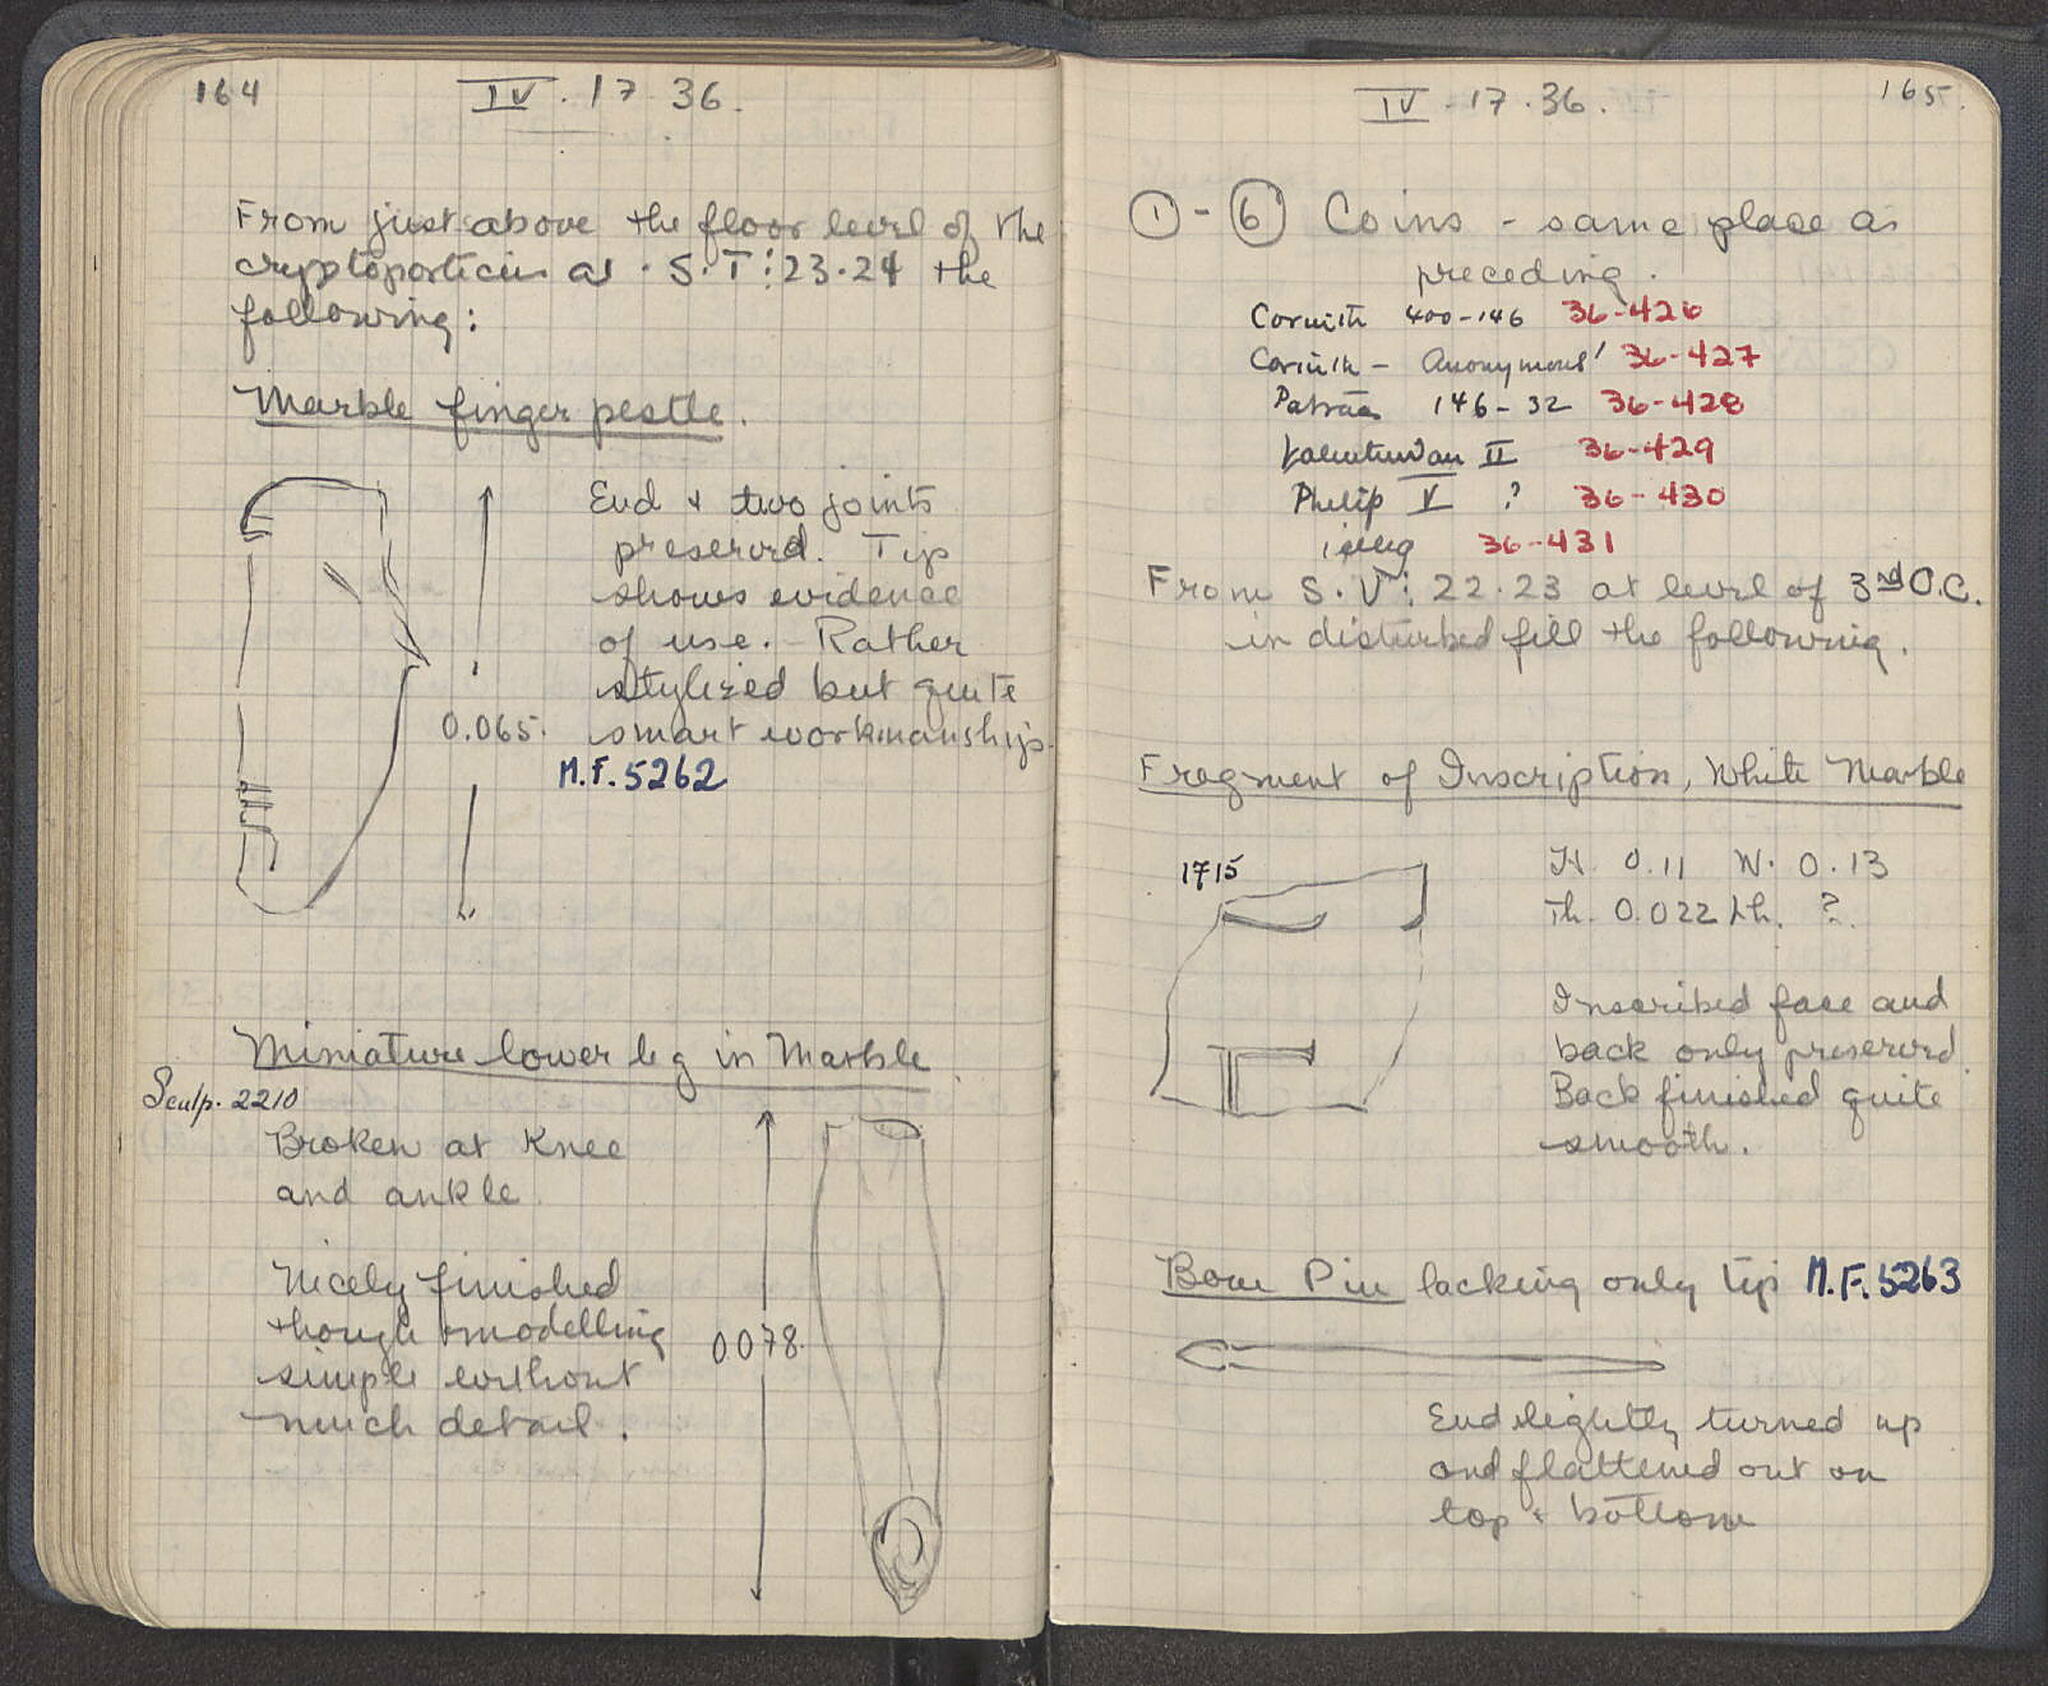 164
IV . 17 36.
From just above the floor level of the
cryptoporticus at S.T:23.24 the
following:
Marble finger pestle.
End + two joints
preserved. Tip
shows evidence
of use. - Rather
stylized but quite
0.065. smart workmanship.
M.F. 5262
Miniature lower leg in Marble
Sculp. 2210
Broken at Knee
and ankle
Nicely finished
though modelling
0.078.
simple without
much detail.
165.
IV . 17 . 36.
① - ⑥ Coins - same place as
preceding.
Corinth 400-146 36-426
Corinth - Anonymous 36-427
Patras 146-32 36-428
Valentinian II 36-429
Philip V ? 36-430
illeg 36-431
From S.V: 22.23 at level of 3rd O.C.
in disturbed fill the following.
Fragment of Inscription, White Marble
1715
H. 0.11 W. 0.13
Th. 0.022 Lh. ?
Inscribed face and
back only preserved.
Back finished quite
smooth.
Bone Pin lacking only tip M.F. 5263
End slightly turned up
and flattened out on
top + bottom